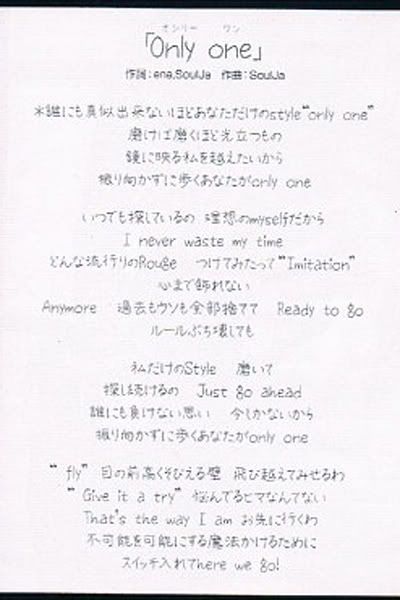 オンリー ワン
「Only one」
作詞:ena,SoulJa 作曲:SoulJa
※誰にも真似出来ないほどあなただけのstyle"only one"
磨けば磨くほど光立つもの
鏡に映る私を越えたいから
振り向かずに歩くあなたがonly one
いつでも探しているの 理想のmyselfだから
I never waste my time
どんな流行りのRouge つけてみたって"Imitation"
心まで飾れない
Anymore 過去もウソも全部捨てて Ready to go
ルールぶち壊しても
私だけのStyle 磨いて
探し続けるの Just go ahead
誰にも負けない思い 今しかないから
振り向かずに歩くあなたがonly one
"fly" 目の前高くそびえる壁 飛び越えてみせるわ
"Give it a try" 悩んでるヒマなんてない
That's the way I am お先に行くわ
不可能を可能にする魔法かけるために
スイッチ入れてhere we go!